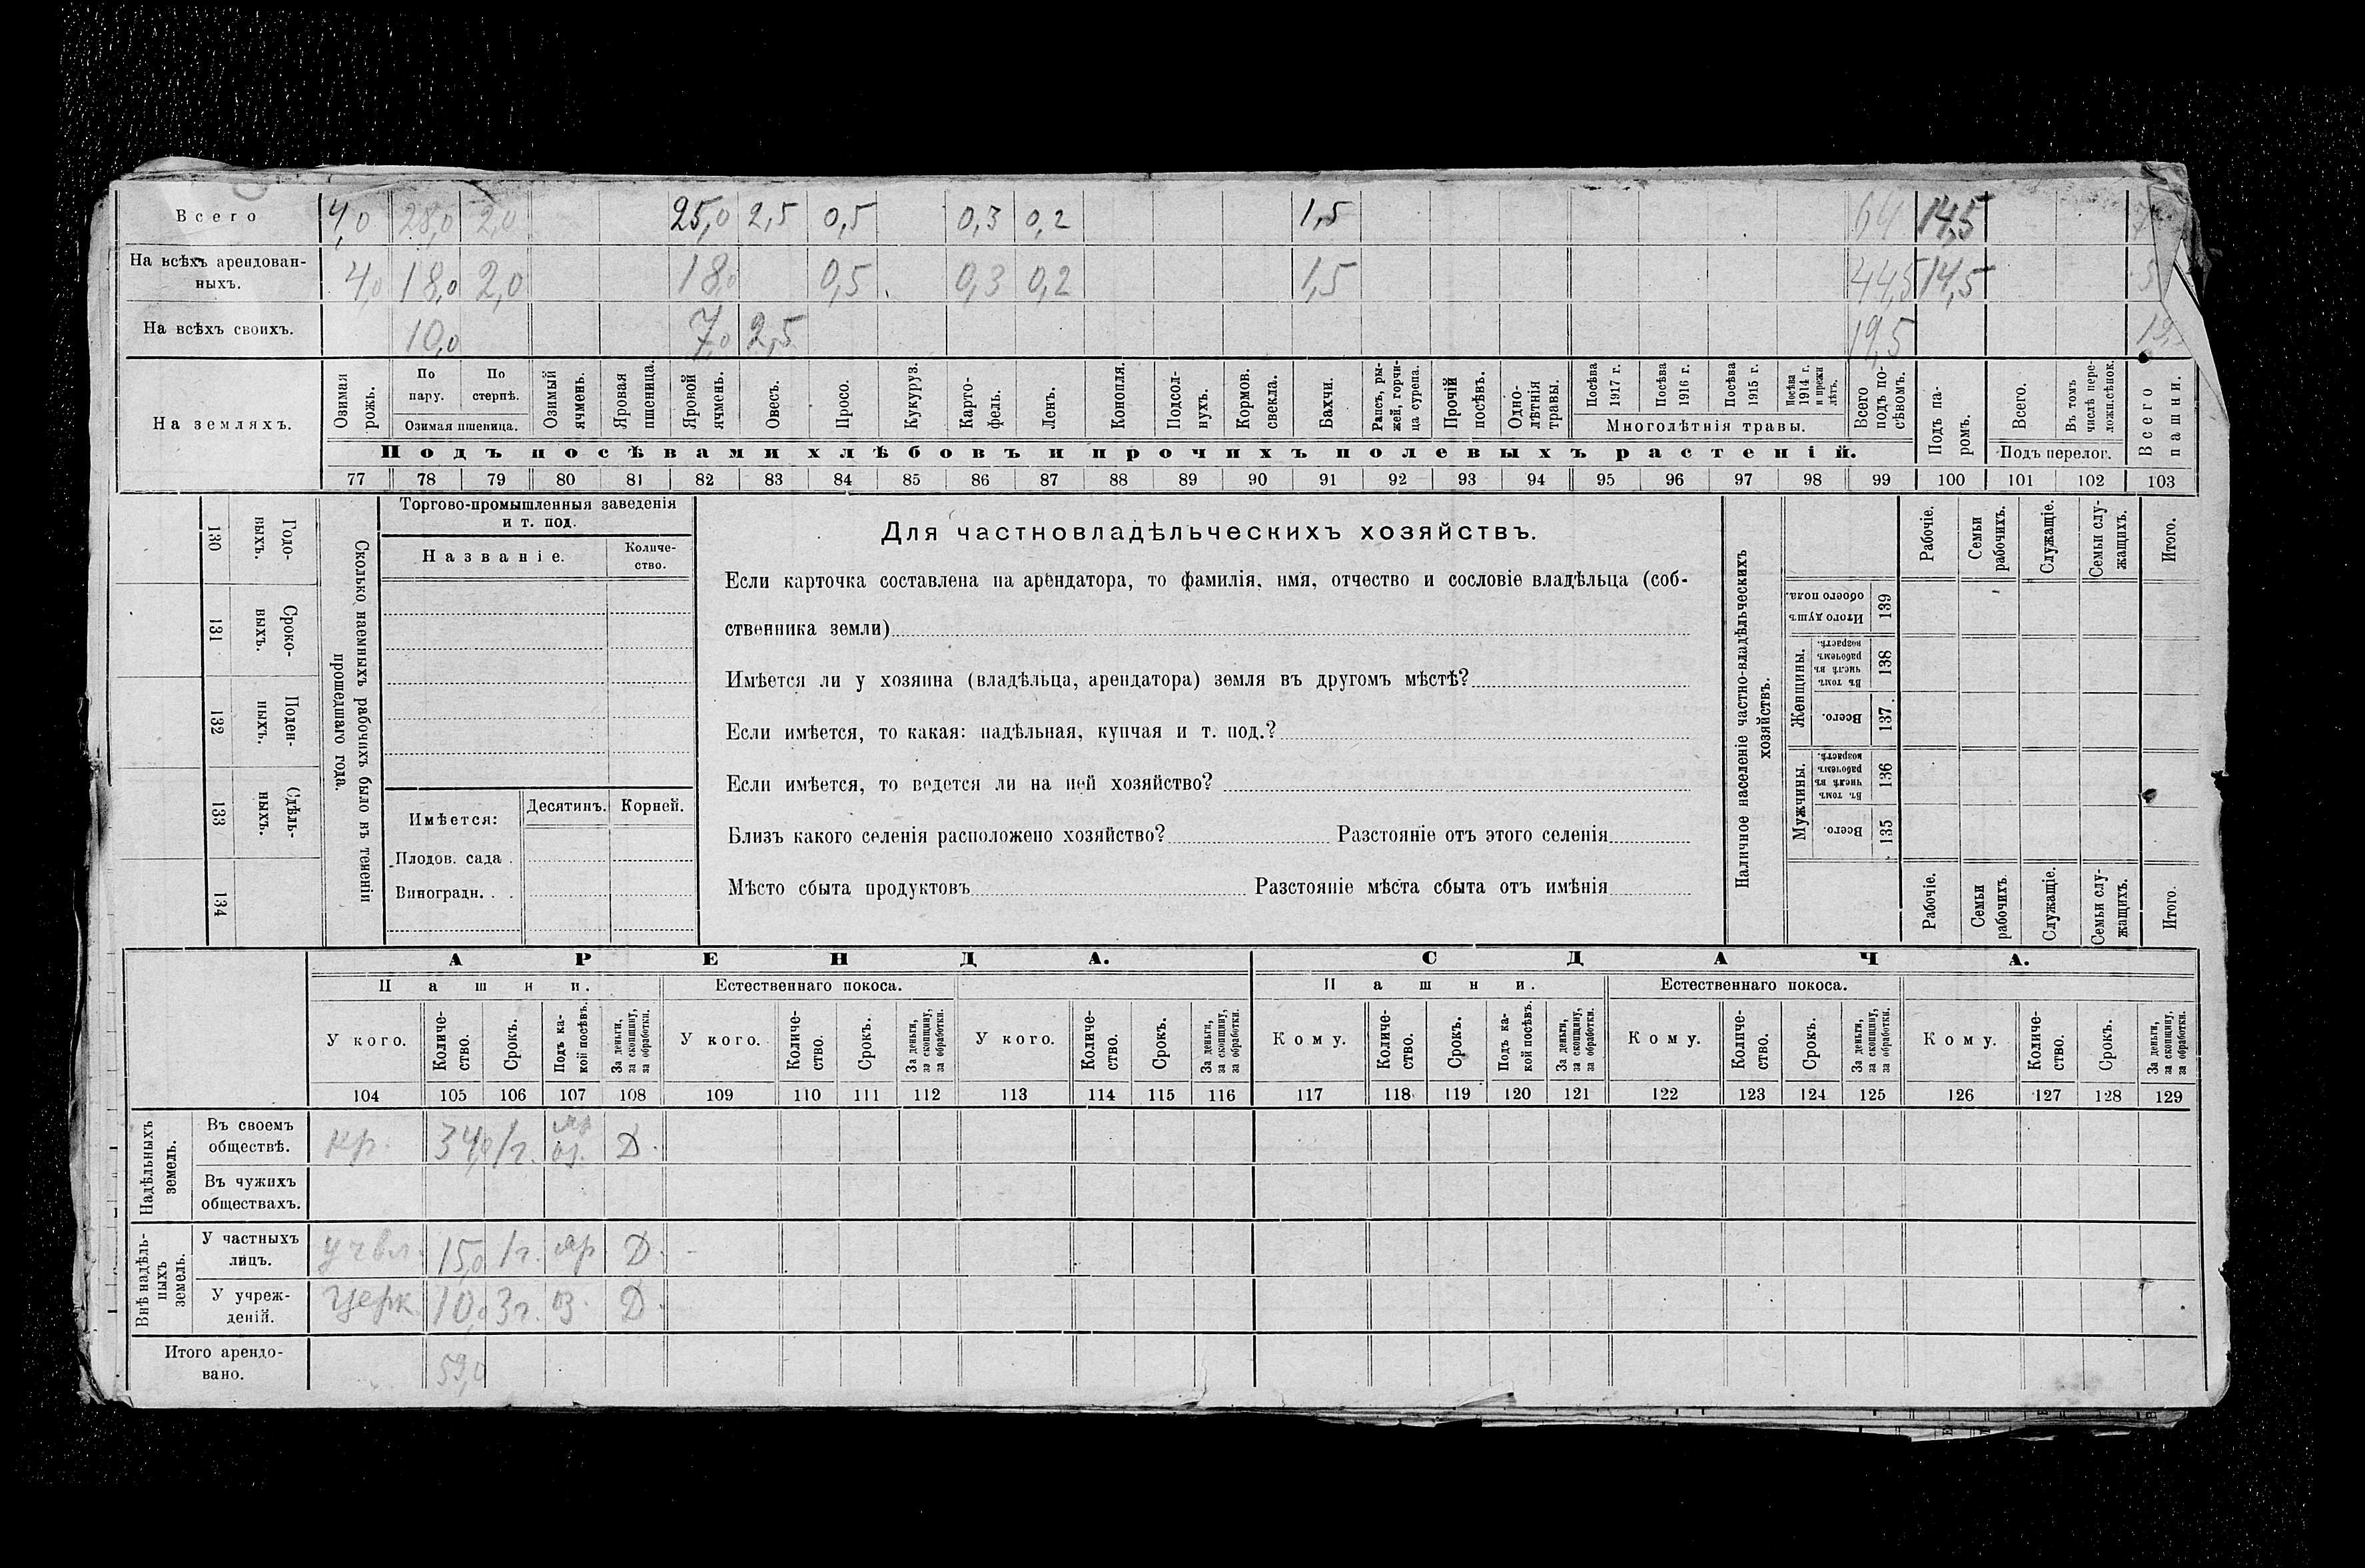 Всего 4,0 28,0 2,0 25,0 2,5 0,5 0,3 0,2 1,5 64 14,5
На всѣхъ арендован-
ныхъ. 4,0 18,0 2,0 18,0 0,5 0,3 0,2 1,5 44,5 14,5
На всѣхъ своихъ. 10,0 7,0 2,5 19,5
На земляхъ.
Озимая рожь.
По пару.
По стернѣ.
Озимая пшеница.
Озимый ячмень.
Яровая пшеница.
Яровой ячмень.
Овесъ.
Просо.
Кукуруз.
Карто-
фель.
Ленъ.
Конопля.
Подсол-
нухъ.
Кормов.
свекла.
Бахчи.
Рапсъ, ры-
жей, горчи-
ца сурепа.
Прочій посѣвъ.
Одно-
лѣтнія травы.
Посѣва 1917 г.
Посѣва 1916 г.
Посѣва 1915 г.
Посѣва 1914 г. и прежн лѣтъ.
Многолѣтнія травы.
Всего подъ по-
сѣвомъ.
Подъ па-
ромъ.
Всего.
Въ томъ числѣ пере-
ложн.сѣнок.
Подъ перелог.
Всего пашни.
Подъ посѣвами хлѣбовъ и прочихъ полевыхъ растеній.
77 78 79 80 81 82 83 84 85 86 87 88 89 90 91 92 93 94 95 96 97 98 99 100 101 102 103
Сколько наемныхъ рабочихъ было въ теченіи
прошедшаго года.
Годо-
выхъ.
130
Сроко-
выхъ.
131
Поден-
ныхъ.
132
Сдѣль-
ныхъ.
133
134
Торгово-промышленныя заведенія
и т. под.
Названіе.
Количе-
ство.
Имѣется:
Десятинъ.
Корней.
Плодов. сада .
Виноградн. . .
Для частновладѣльческихъ хозяйствъ.
Если карточка составлена на арендатора, то фамилія, имя, отчество и сословіе владѣльца (соб-
ственника земли)
Имѣется ли у хозяина (владѣльца, арендатора) земля въ другомъ мѣстѣ?
Если имѣется, то какая: надѣльная, купчая и т. под.?
Если имѣется, то ведется ли на ней хозяйство?
Близъ какого селенія расположено хозяйство? Разстояніе отъ этого селенія
Мѣсто сбыта продуктовъ Разстояніе мѣста сбыта отъ имѣнія
Наличное населеніе частно-владѣльческихъ
хозяйствъ.
Рабочіе.
Семьи рабочихъ.
Служащіе.
Семьи слу-
жащихъ.
Итого.
Итого душъ обоего пола.
139
Женщины.
Въ томъ числѣ въ рабочемъ возрастѣ.
138
Всего.
137
Мужчины.
Въ томъ числѣ въ рабочемъ возрастѣ.
136
Всего.
135
Рабочіе.
Семьи рабочихъ.
Служащіе.
Семьи слу-
жащихъ.
Итого.
АРЕНДА. СДАЧА.
Пашни. Естественнаго покоса. Пашни. Естественнаго покоса.
У кого.
Количе-
ство.
Срокъ.
Подъ ка-
кой посѣвъ.
За деньги,
за скопщину,
за обработки.
У кого.
Количе-
ство.
Срокъ.
За деньги,
за скопщину,
за обработки.
У кого.
Количе-
ство.
Срокъ.
За деньги,
за скопщину,
за обработки.
Кому.
Количе-
ство.
Срокъ.
Подъ ка-
кой посѣвъ.
За деньги,
за скопщину,
за обработки.
Кому.
Количе-
ство.
Срокъ.
За деньги,
за скопщину,
за обработки.
Кому.
Количе-
ство.
Срокъ.
За деньги,
за скопщину,
за обработки.
104 105 106 107 108 109 110 111 112 113 114 115 116 117 118 119 120 121 122 123 124 125 126 127 128 129
Надѣльныхъ
земель.
Въ своемъ
обществѣ. кр. 34,0 1 г. яр оз. Д.
Въ чужихъ
обществахъ.
Внѣ надѣль-
ныхъ
земель.
У частныхъ
лицъ. у ч вл. 15,0 1 г. яр Д.
У учреж-
деній. Церк 10,0 3 г. оз. Д.
Итого арендо-
вано. 59,0